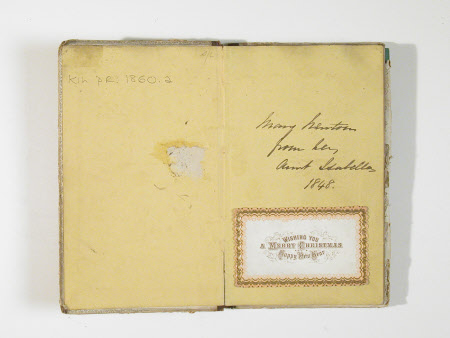 Kin PRI 1860.2
Mary Newton
from her
Aunt Isabella
1848.
WISHING YOU
A MERRY CHRISTMAS
Happy New Year